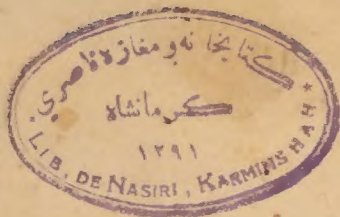 کتابخانه و مغازه ناصری
کرمانشاه
۱۲۹۱
LIB. DE NASIRI, KARMINSHAH *